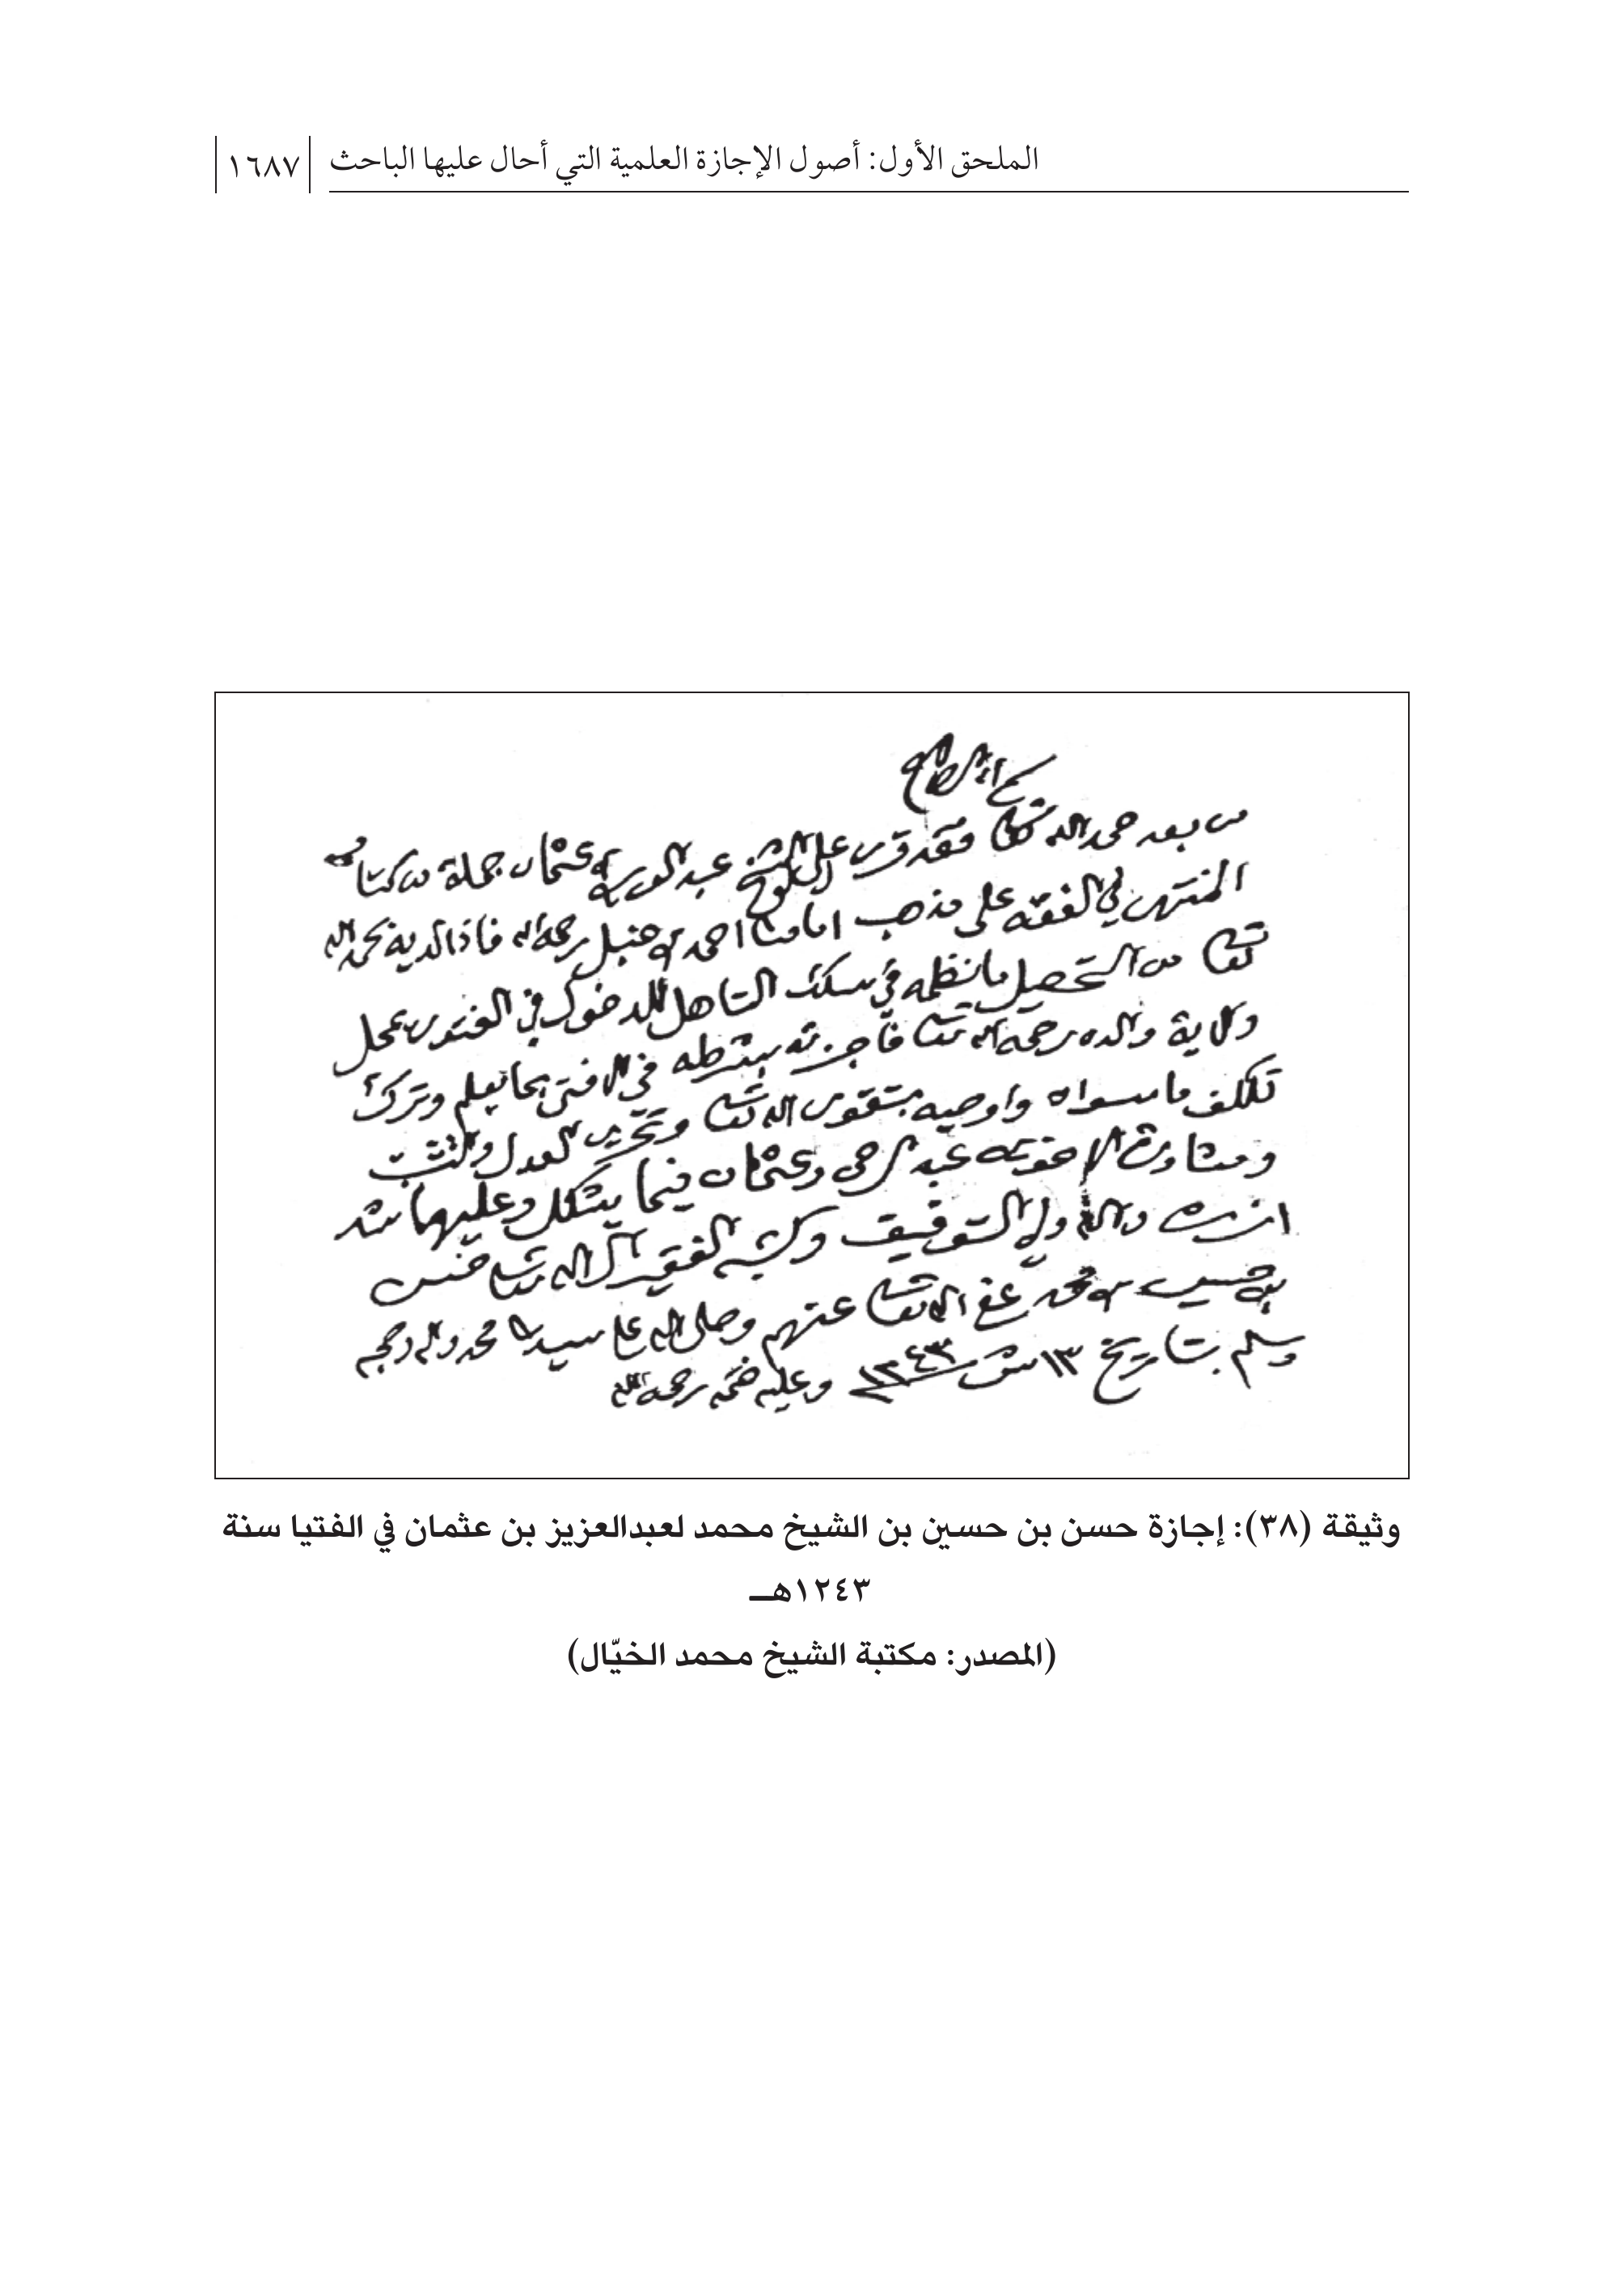 الملحق الأول: أصول الإجازة العلمية التي أحال عليها الباحث ١٦٨٧
من بعد حمد الله تعالى فقد قرى علي الشيخ عبد العزيز بن عثمان جملة من كتاب
المنتهى في الفقه على مذهب امامنا احمد بن حنبل رحمه الله فاذا لديه بحمد الله
تعالى من التحصيل ما نظمه في سلك التاهل للدخول في الفتوى بمحل
ولاية والده رحمه الله تعالى فأجزته بشرطه في الافتى بما يعلم وترك
تكلف ما سواه واوصيه بتقوى الله تعالى وتحري العدل والتثبت
ومشاورة الاخوين عبد الرحمن وعثمان فيما يشكل وعليهما شد
ازره والله ولي التوفيق وكتبه الفقير الى الله تعالى حسن
بن حسين بن محمد عفى الله تعالى عنهم وصلى الله على سيدنا محمد واله وصحبه
وسلم بتاريخ ١٣ ش ١٢٤٣ وعليه ختمه رحمه الله
وثيقة (٣٨): إجازة حسن بن حسين بن الشيخ محمد لعبدالعزيز بن عثمان في الفتيا سنة
١٢٤٣هـ
(المصدر: مكتبة الشيخ محمد الخيّال)